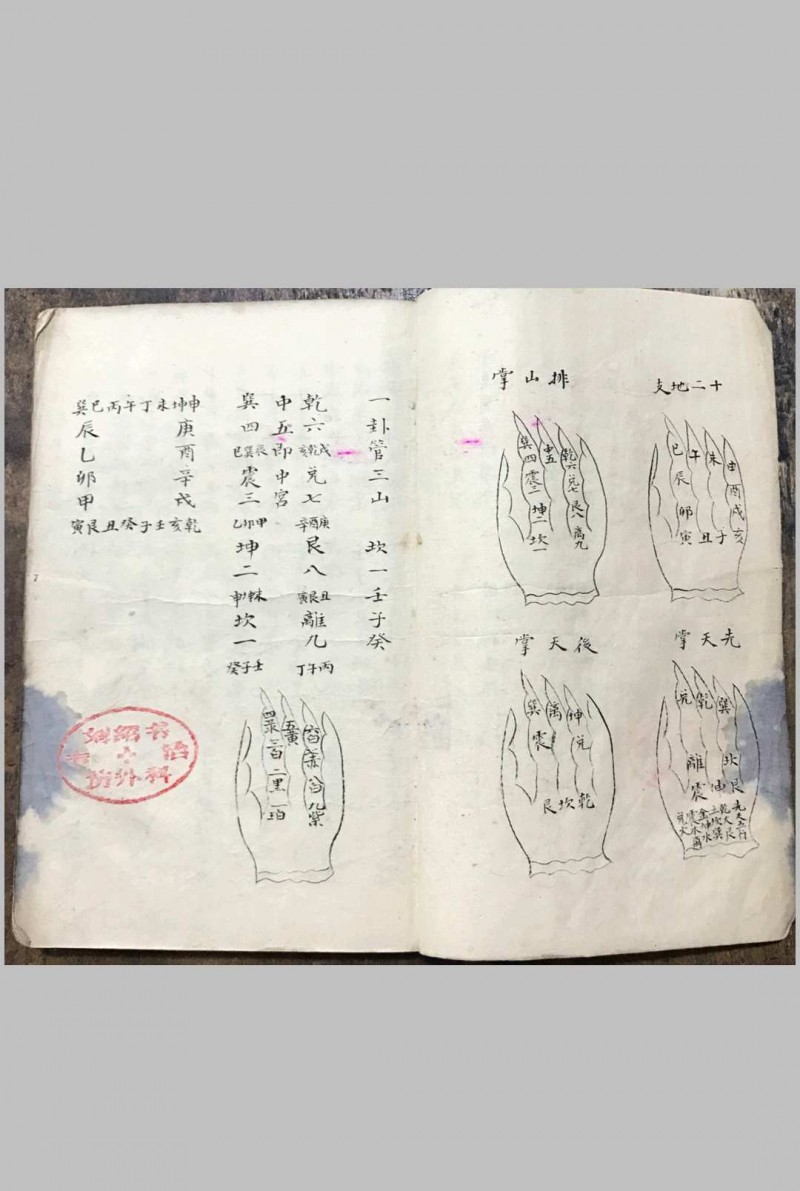 十二地支
巳 午 未 申
辰 酉
卯 戌
寅 丑 子 亥
排山掌
巽四 中五 乾六
震三 兌七
坤二 艮八
坎一 離九
先天掌
兌 乾 巽
離 坎
震 坤 艮
後天掌
巽 離 坤
震 兌
艮 坎 乾
一卦管三山 坎一壬子癸
乾六
戌乾亥
兌七
庚酉辛
艮八
丑艮寅
離九
丙午丁
中五即中宮
巽四
辰巽巳
震三
甲卯乙
坤二
未坤申
坎一
壬子癸
四彔 五黃
三白 二黑 一白
六白 七赤 八白 九紫
巽巳丙午丁未坤申
辰 庚
乙 酉
卯 辛
甲 戌
寅艮丑癸子壬亥乾